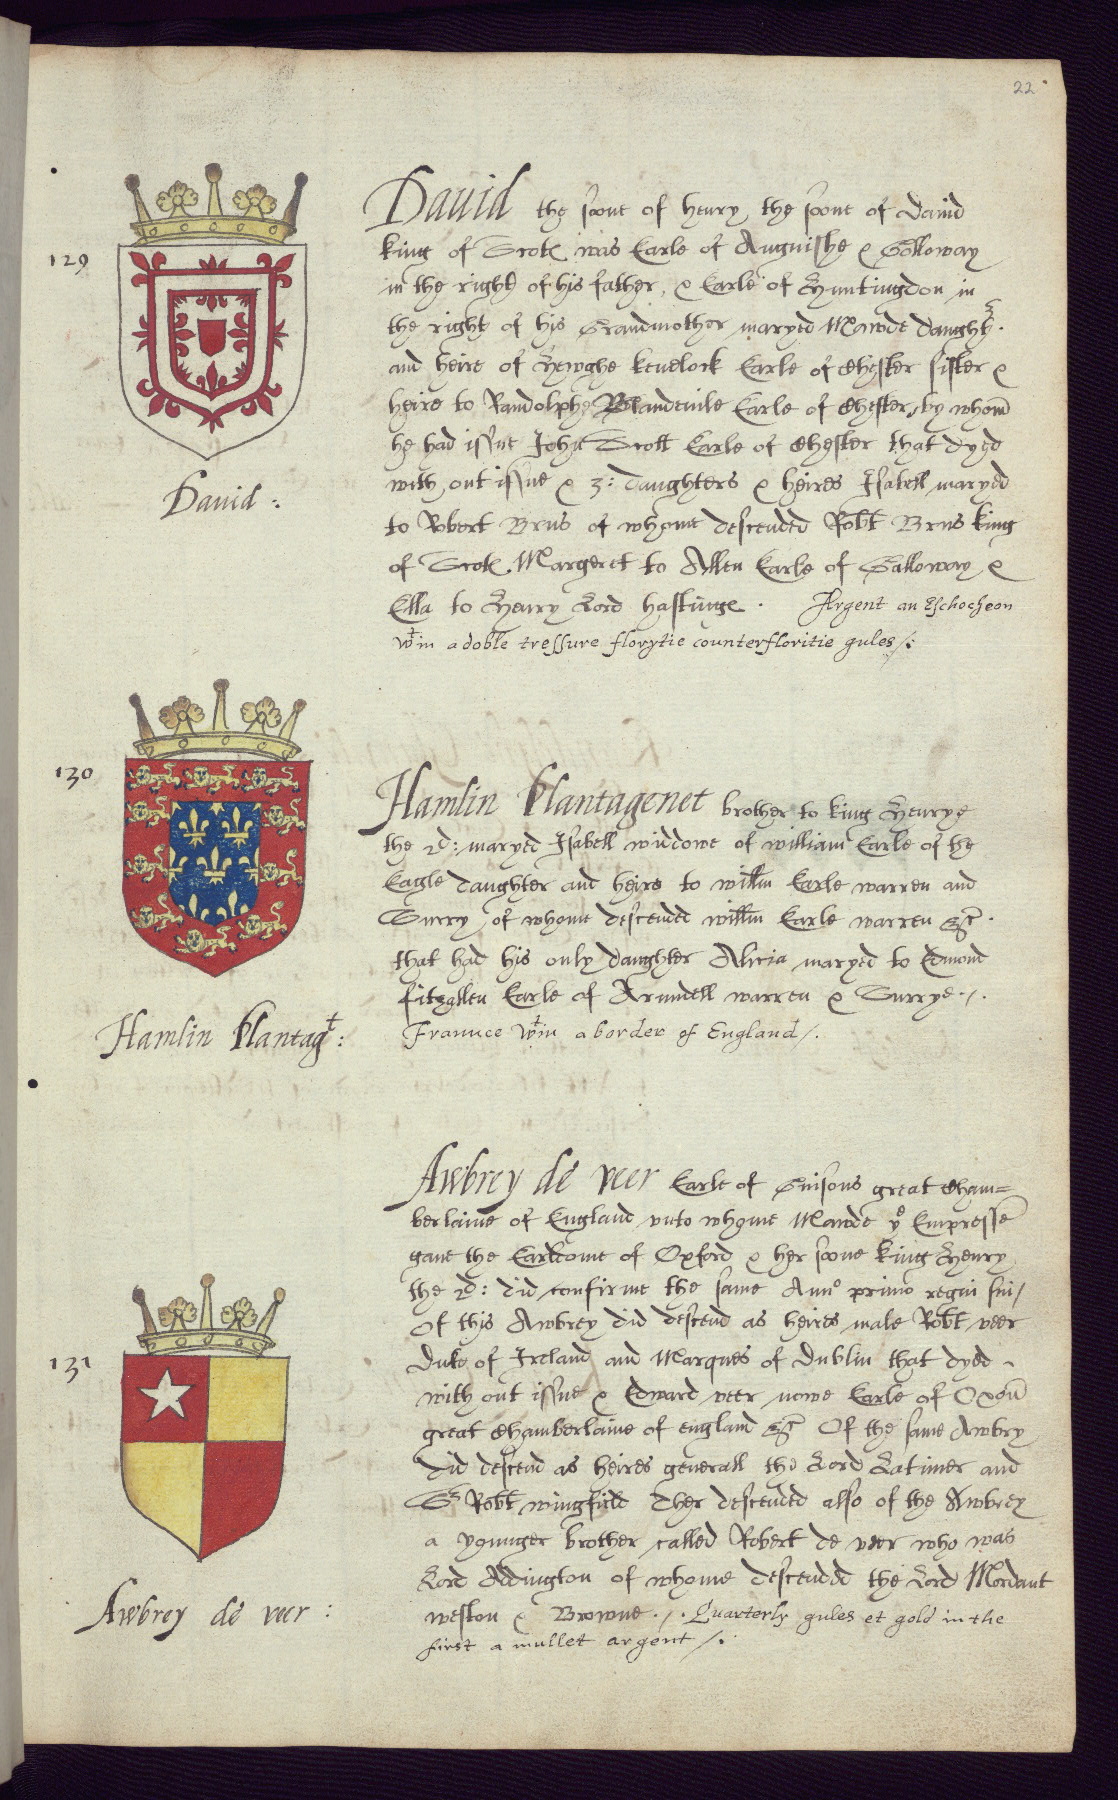 22
129
Dauid the sone of henry the sone of dauid
king of Scot was Earle of Anguishe & Galloway
in the right of his father, & Earle of Huntingdon in
the right of his Grandmother maryed Mawde daught
and heire of Hewghe keuelock Earle of Chester sister &
heire to Randolphe Blandeuile Earle of Chester, by whom
he had issue John Scott Earle of Chester that dyed
with out issue & 3: daughters & heires Isabell maryed
to Robert Brus of whome descended Robt Brus king
of Scot Margeret to Allen Earle of Galloway &
Ella to Henry Lord hastinge. Argent an Eschocheon
wt in a doble tressure florytie counterfloritie gules /:
Dauid :
130
Hamlin Plantagenet brother to king Henrye
the 2d: maryed Isabell widdowe of william Earle of the
Eagle daughter and heire to willm Earle warren and
Surry, of whome descended willm Earle warren &c.
that had his only daughter Alicia maryed to Edmond
fitzallen Earle of Arundell warren & Surrye ./.
Fraunce wt in a border of England /.
Hamlin Plantagt :
131
Awbrey de veer Earle of Guisons great Cham=
berlaine of England vnto whome Mawde ye Empresse
gaue the Earldome of Oxford & her sone king Henry
the 2d: did confirme the same Anno primo regni sui /
Of this Awbrey did descend as heires male Robt veer
duke of Ireland and Marques of dublin that dyed
with out issue & Edward veer nowe Earle of Oxon
great Chamberlaine of england &c Of the same Awbry
did descend as heires generall the Lord Latimer and
Sr Robt wingfield Ther descended also of the Awbrey
a younger brother called Robert de veer who was
Lord Addington of whome descended the Lord Mordant
weston & Browne ./. Quarterly gules et gold in the
first a mullet argent /.
Awbrey de veer :